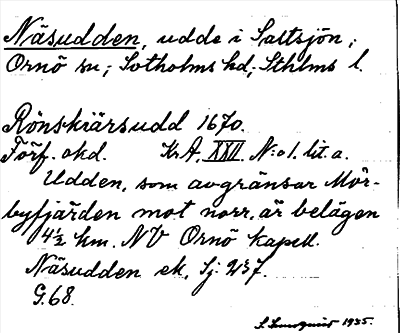 Näsudden, udde i Saltsjön;
Ornö sn; Sotholms hd, Sthlms l.
Rönskiärsudd 1670.
Förf. okd. Kr.A. XXII. N:o 1. lit. a.
Udden, som avgränsar Mör-
byfjärden mot norr, är belägen
4½ km. NV Ornö kapell.
Näsudden ek. Sj. 237.
G.68.
1935.